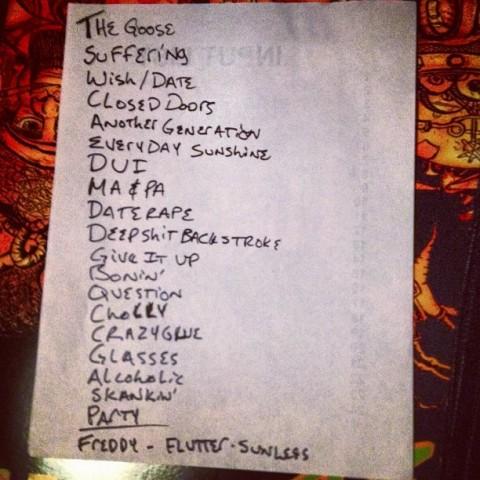 THE GOOSE
SUFFERING
WISH/DATE
CLOSED DOORS
ANOTHER GENERATION
EVERYDAY SUNSHINE
DUI
MA & PA
DATE RAPE
DEEPSHIT BACKSTROKE
GIVE IT UP
BONIN'
QUESTION
CHOLLY
CRAZYGLUE
GLASSES
ALCOHOLIC
SKANKIN'
PARTY
FREDDY - FLUTTER - SUNLESS
INPUT